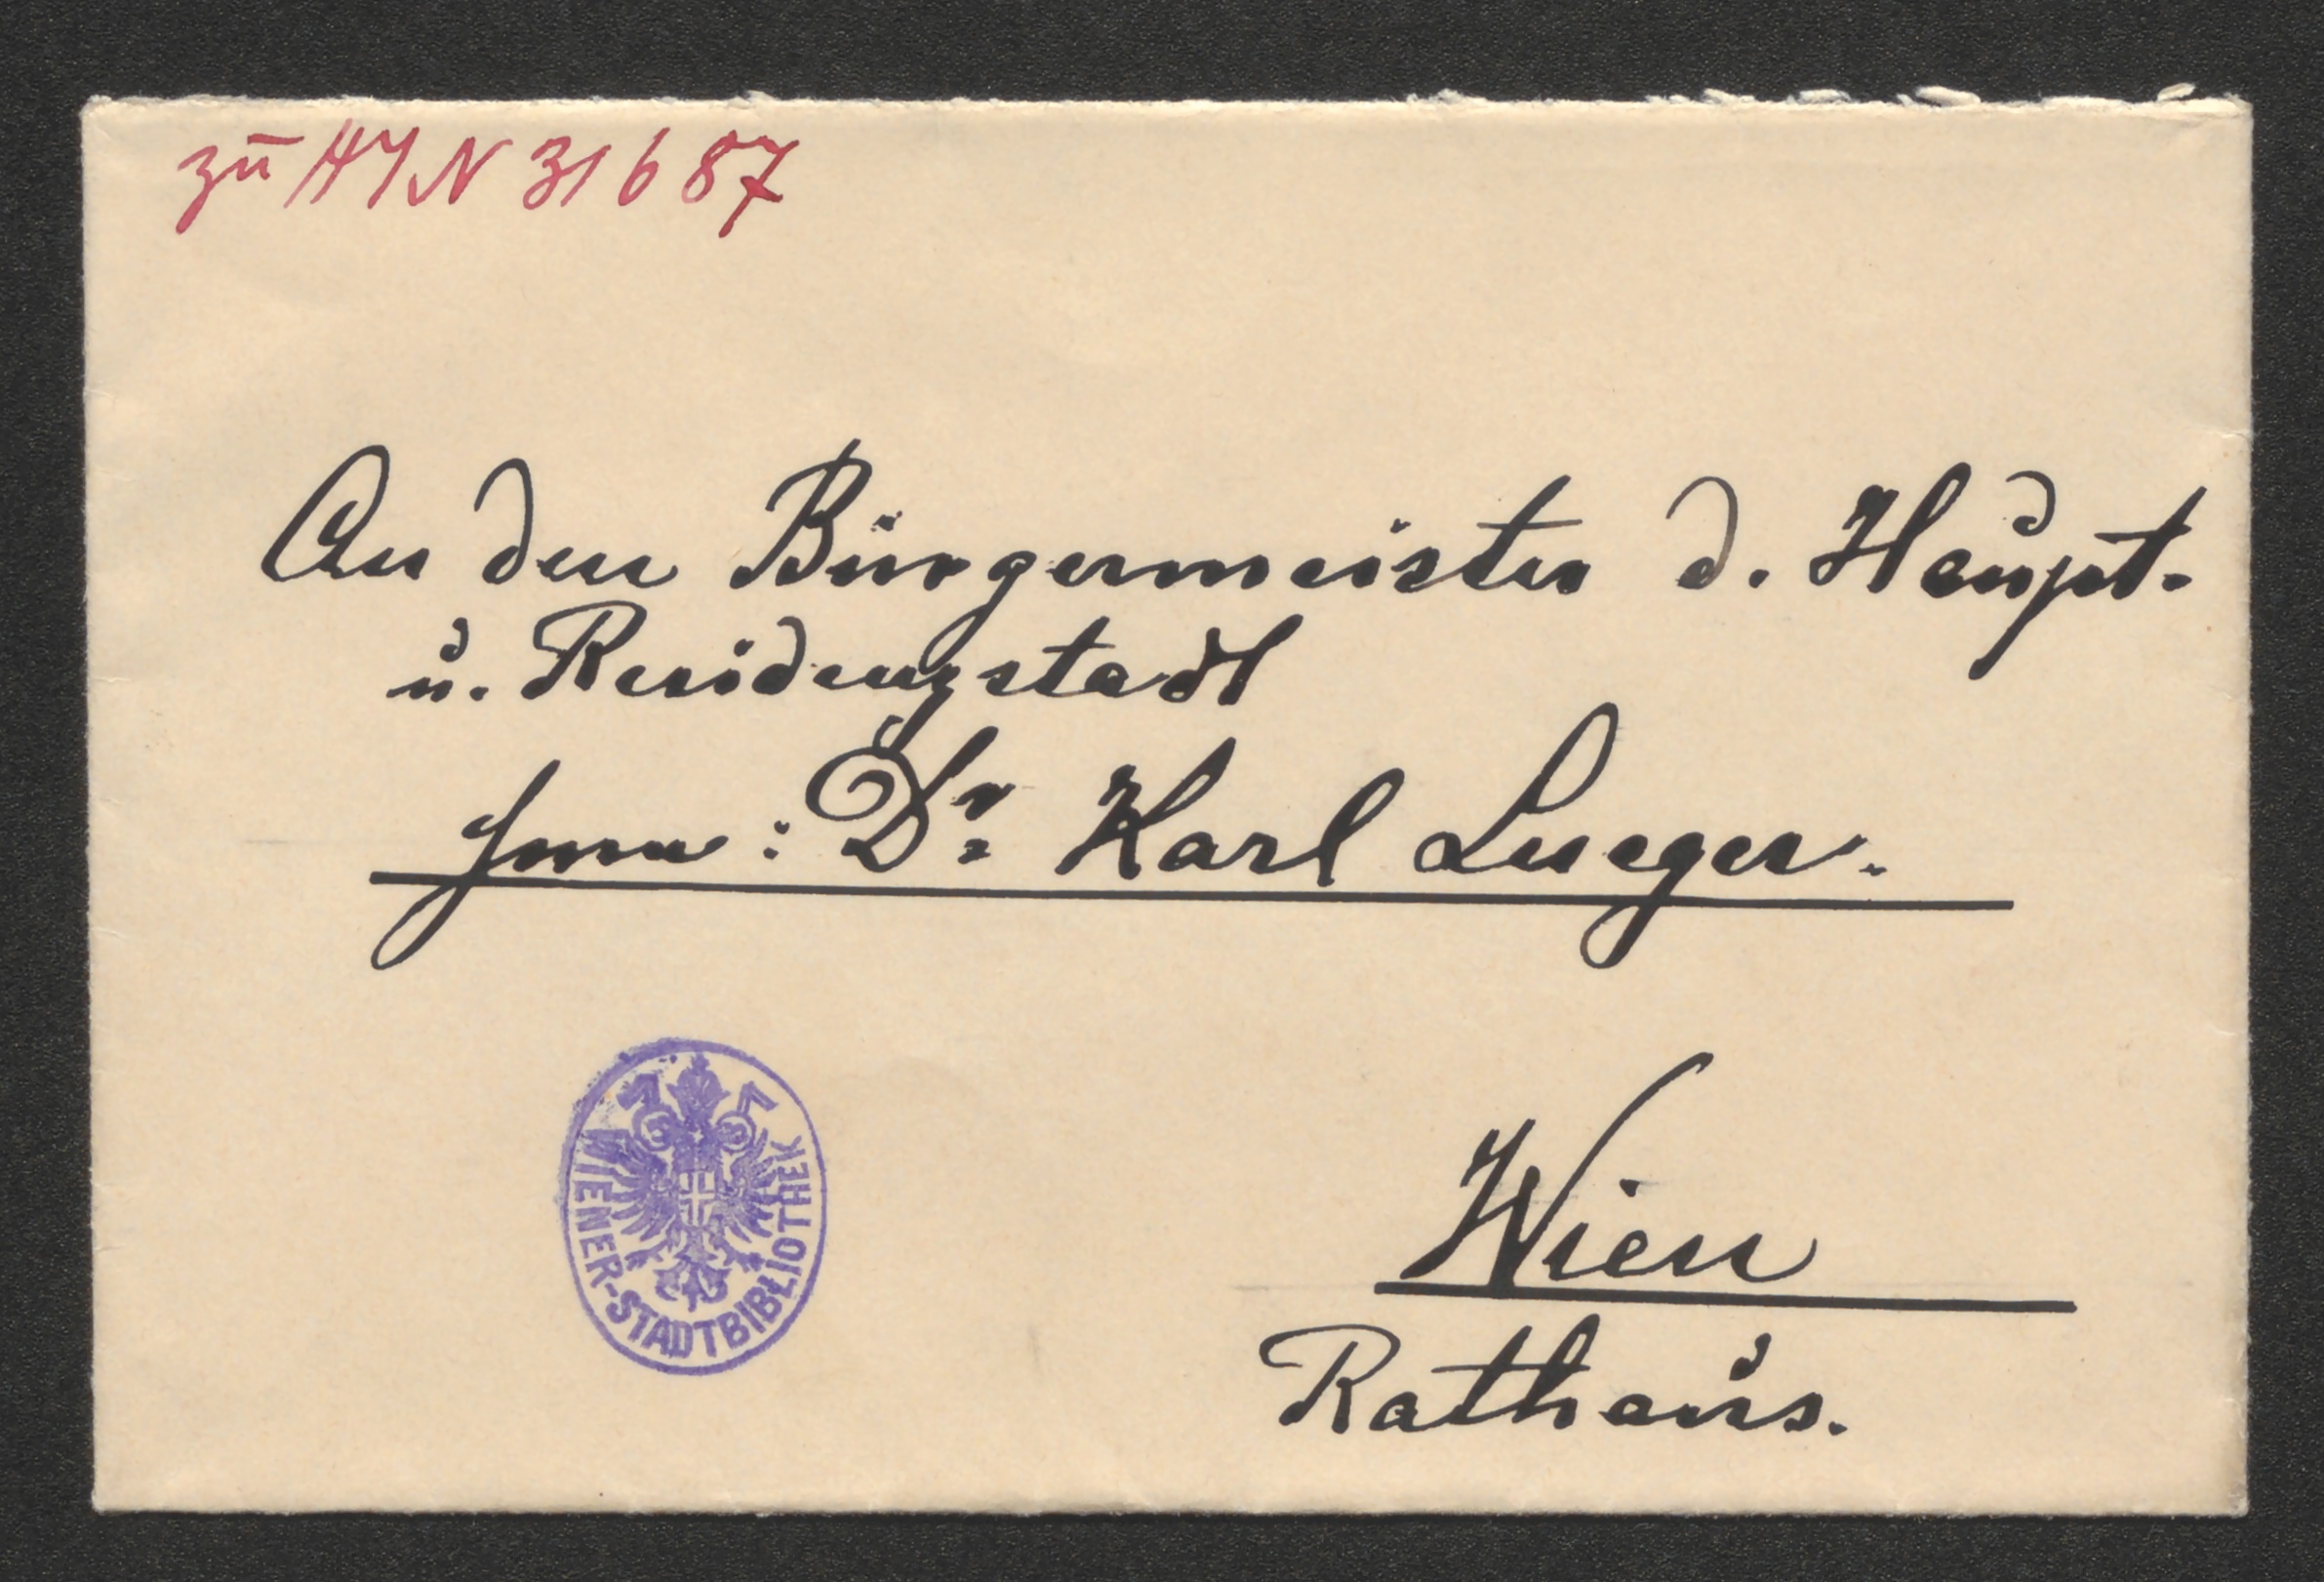 zu HIN 31687
An den Bürgermeister d. Haupt-
u. Residenzstadt
Herrn: Dr. Karl Lueger.
WIENER-STADTBIBLIOTHEK
Wien
Rathaus.